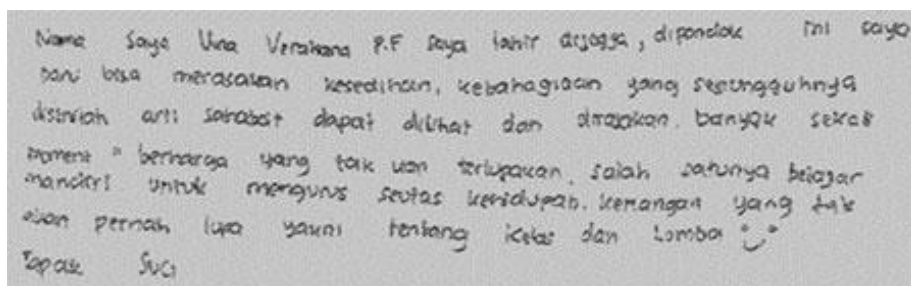 Nama Saya Una Verahana P.F saya lahir dijogja, dipondok ini saya
baru bisa merasakan kesedihan, kebahagiaan yang sesungguhnya
disinilah arti sahabat dapat dilihat dan dirasakan. banyak sekali
moment " berharga yang tak kan terlupakan, salah satunya belajar
mandiri untuk mengurus seutas kehidupan. kenangan yang tak
akan pernah lupa yakni tentang kelas dan Lomba
Tapak Suci